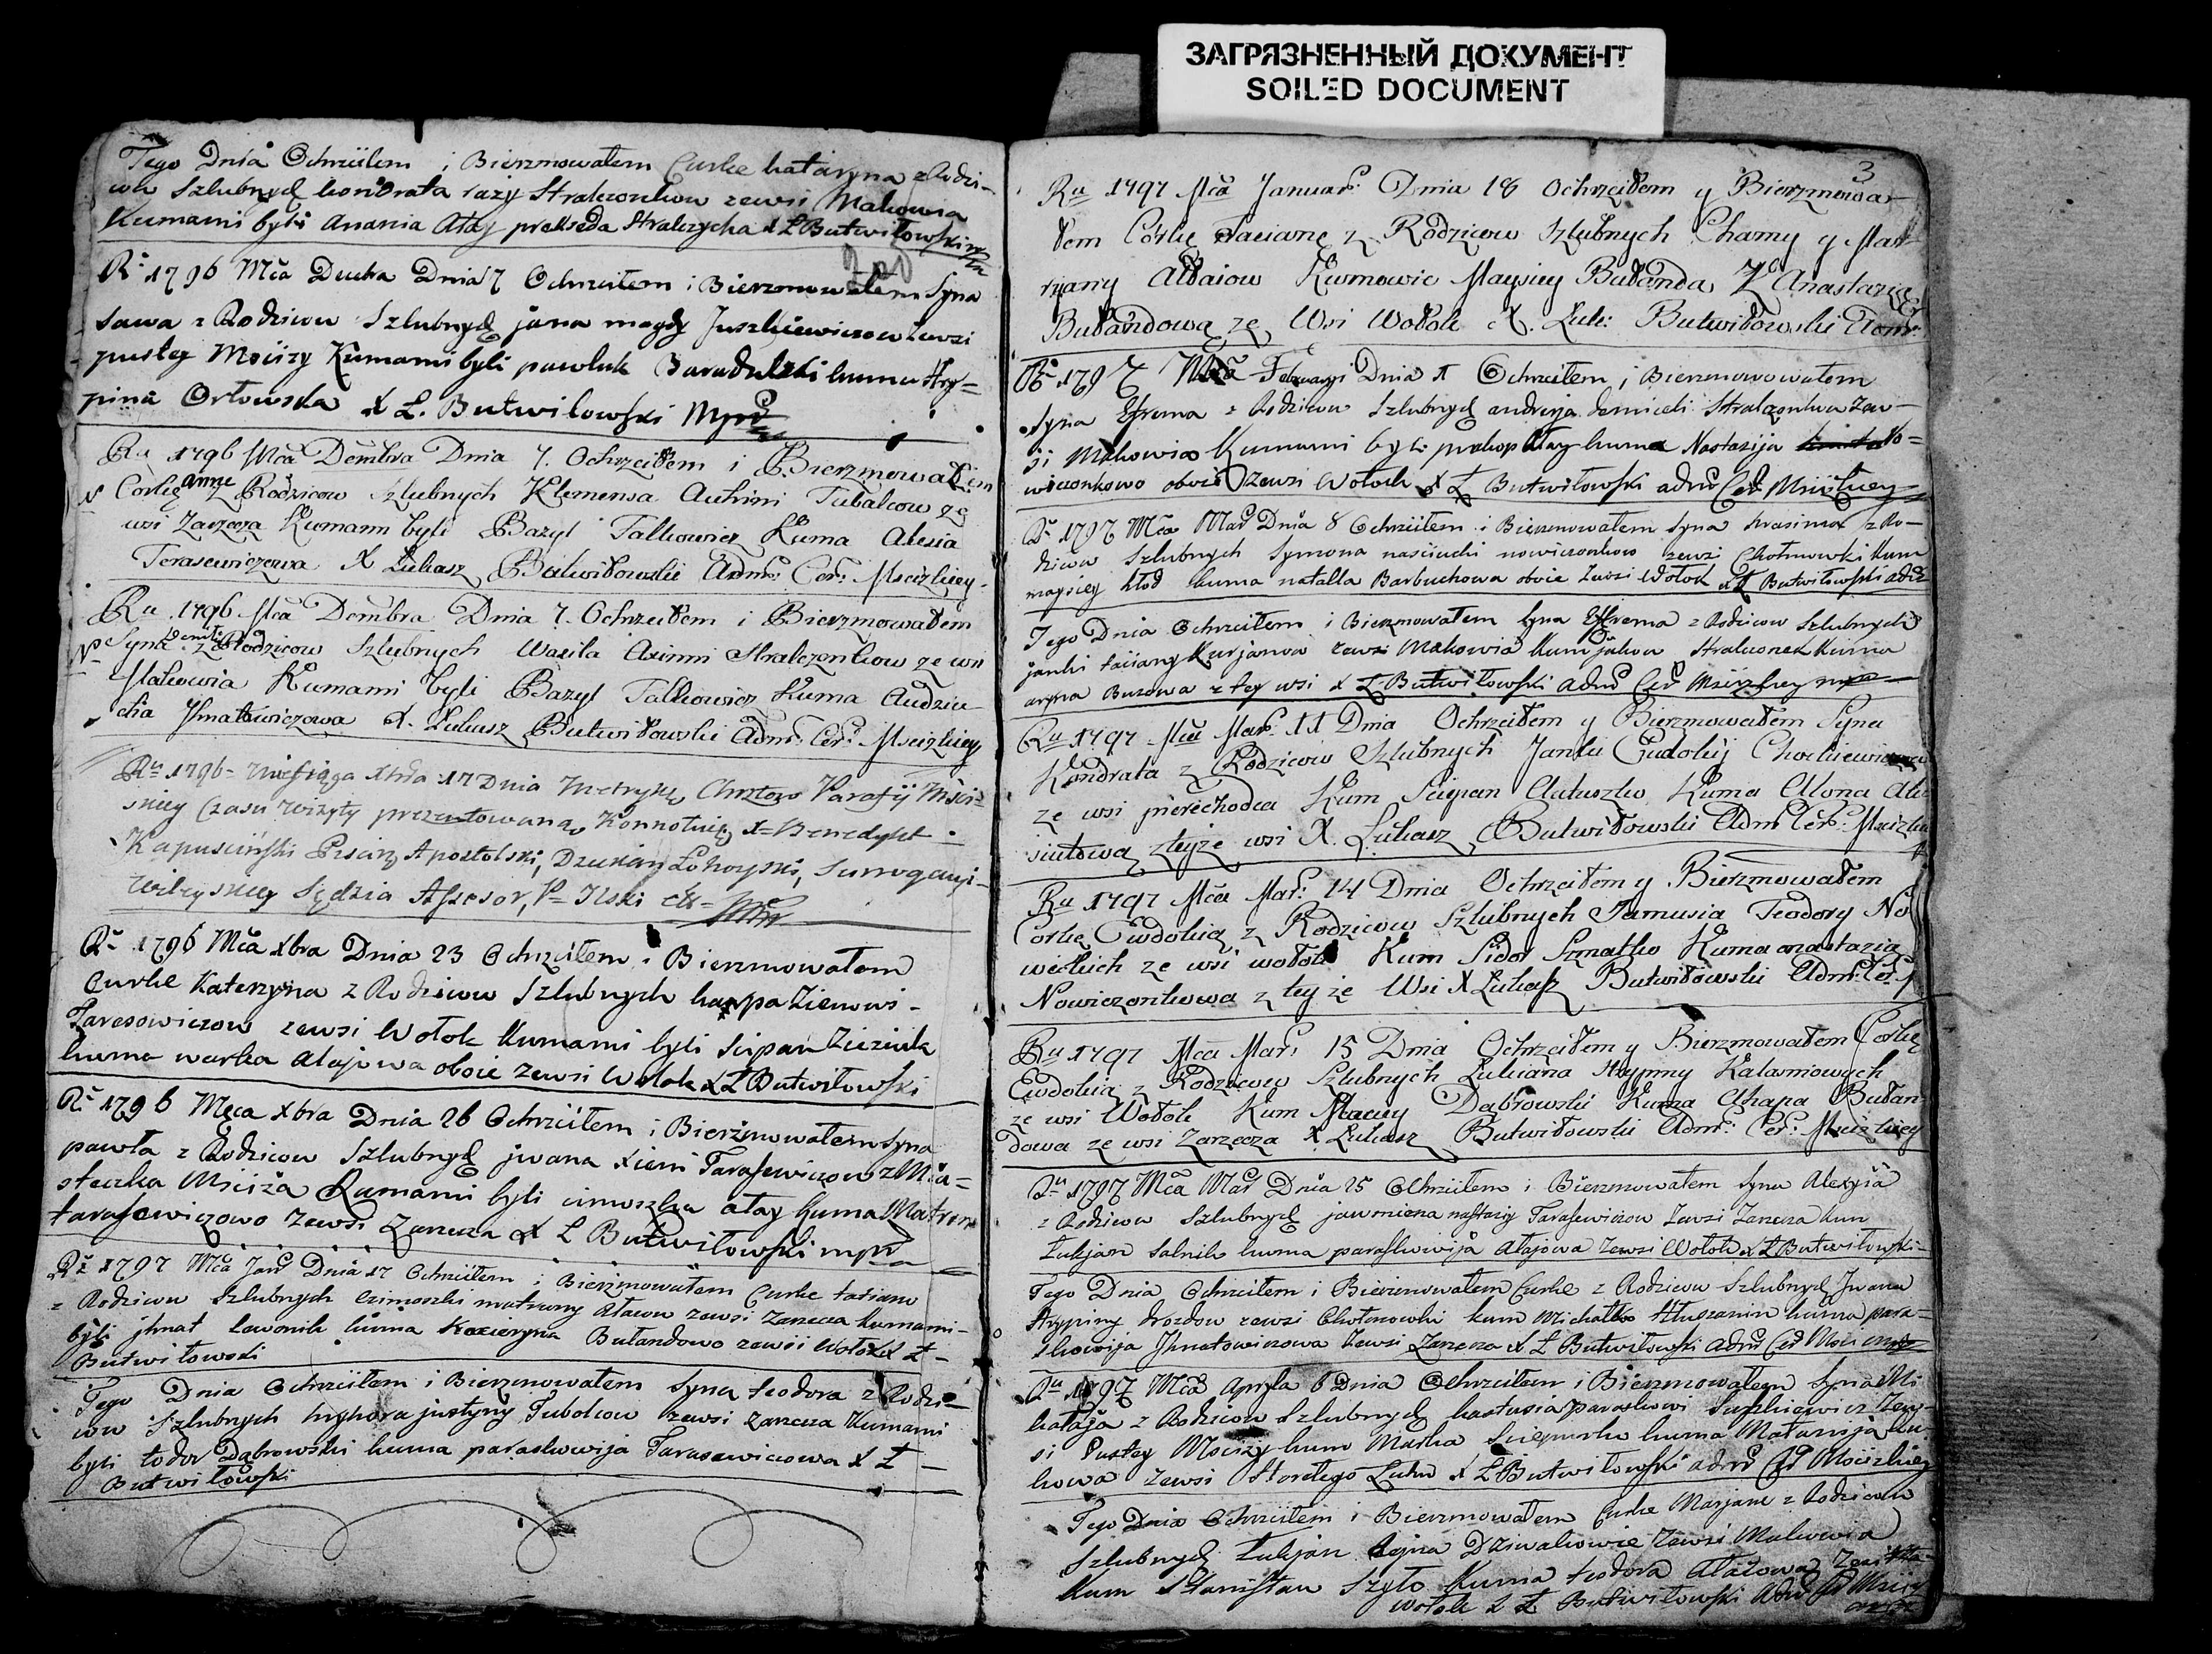 ЗАГРЯЗНЕННЫЙ ДОКУМЕНТ
SOILED DOCUMENT
Tego Dnia Ochrzciłem i Bierzmowałem Curke kataryna z Rodzi-
cow Szlubnych kondrata razy Stralczonkow zewsi Makowia
Kumami byli Anania Ałay prakseda Stralczycha X Ł Butwiłowski
R. 1796 Mca Dnia 7 Ochrzciłem i Bierzmowałem Syna
Sawa z Rodzicow Szlubnych jana magdy Juszkiewiczow zewsi
pustey Mscizy Kumami byli pawluk kuma Hry=
pina Orłowska X Ł. Butwiłowski Mpr
Ru 1796 Mca Dembra Dnia 7. Ochrzciłem i Bierzmowałem
Corkę anne z Rodzicow Szlubnych Klemensa Tubalcow ze
wsi Zarzecza Kumami byli Bazyl Talkowicz Kuma Alesia
Terasewiczowa X Łukasz Butwiłowski Adm: Cer: Mscizkiey.
Ru 1796 Mca Dembra Dnia 7. Ochrzciłem i Bierzmowałem
Syna z Rodzicow Szlubnych Wasila Axinni Stralczonkow ze wsi
Makowia Kumami byli Bazyl Talkowicz Kuma Audziu-
cha Jhnatowiczowa X. Łukasz Butwiłowski Adm: Cer: Mscizkiey
Ru 1796 = miesiąca Xbra 17 Dnia Metryka Chrztow Parafij Msciz-
skiey Czasu Wizyty prezentowaną Konnotuię X = Benedykt
Kapusciński Pisarz Apostolski, Dziekan Łohoyski, Surrogacyi-
Wileyskiey Sędzia Assesor,
R. 1796 Mca Xbra Dnia 23 Ochrzciłem i Bierzmowałem
Curke Katerzyna z Rodzicow Szlubnych karpa Zienowi-
Taresowiczow zewsi Wołok Kumami byli Scipan
kuma warka Ałajowa oboie zewsi Wołok X Ł Butwiłowski
R. 1796 Mca Xbra Dnia 26 Ochrzciłem i Bierzmowałem Syna
pawła z Rodzicow Szlubnych jwana Xieni Tarasewiczow z Mia=
steczka Msciża Kumami byli cimoszka ałay Kuma Matron
tarasewiczowo zewsi Zarzecza X Ł Butwiłowski mpr
R. 1797 Mca Jan Dnia 17 Ochrzciłem i Bierzmowałem Curke tatiana
z Rodzicow Szlubnych cimoszki matruny Ałaiow zewsi Zarzecza kumami-
byli jhnat Lawonik kuma Kacieryna Bułandowo zewsi Wołok X Ł-
Butwiłowski
Tego Dnia Ochrzciłem i Bierzmowałem Syna teodora z Rodzi-
cow Szlubnych hryhora justyny Tubolcow zewsi Zarzecza Kumami
byli todor Dąbrowski kuma paraskowija Tarasewiczowa X Ł-
Butwiłowski
3
Ru 1797 Mca Januar: Dnia 18 Ochrzciłem y Bierzmowa-
łem Córkę Tacianę z Rodzicow Szlubnych Chamy y Mar-
ryanny Ałaiow Kumowie Maysiey Bułanda Z Anastazią
Bułandową ze Wsi Wołok X. Łuk: Butwiłowski Adm:
R. 1797 Mca Februarii Dnia Ochrzciłem i Bierzmowałem
Syna Efrema z Rodzicow Szlubnych andreja Stralzonkow zew-
si Makowia Kumami byli prakop Ałay kuma Nastazija No=
wiczonkowo oboie zewsi Wołok X Ł Butwiłowski adm Cer Mscizkiey
R. 1797 Mca Mar Dnia 8 Ochrzciłem i Bierzmowałem Syna z Ro-
dzicow Szlubnych Symona nasciuchi nowiczonkow zewsi Chotnowki Kum
maysiey kłod kuma natalla Barbuchowa oboie zewsi Wołok X Ł Butwiłowski adm
Tego Dnia Ochrzciłem i Bierzmowałem Syna Efrema z Rodzicow Szlubnych
janki taciany Kurjanow zewsi Makowia Kum jakow Stralczonek Kuma
aryna Buzowa z tey wsi X Ł Butwiłowski adm Cer Mscizkiey mpr
Ru 1797 Mca Mar. 11 Dnia Ochrzciłem y Bierzmowałem Syna
Kondrata z Rodzicow Szlubnych Janki Eudokij
ze wsi pierechodca Kum Scipan Kuma Alona
z teyze wsi X. Łukasz Butwiłowski Adm Cer: Mscizkiey
Ru 1797 Mca Mar: 14 Dnia Ochrzciłem y Bierzmowałem
Corkę Ewdokią z Rodzicow Szlubnych Jamusia Teodory No
wickich ze wsi wołok Kum Sidor Szmatko Kuma anastazia
Nowiczonkowa z tey ze Wsi X Łukasz Butwiłowski Adm: Cer.
Ru 1797 Mca Mar: 15 Dnia Ochrzciłem y Bierzmowałem Corkę
Ewdokią z Rodzicow Szlubnych Łukiana Hrypiny
ze wsi Wołok Kum Maciey Dąbrowski Kuma Ahapa Bułan-
dowa ze wsi Zarzecza X Łukasz Butwiłowski Adm: Cer: Mscizkiey
Ru 1797 Mca Mar Dnia 25 Ochrzciłem i Bierzmowałem Syna Alexyia
z Rodzicow Szlubnych nastazij Tarasewiczow zewsi Zarzecza kum
Łukjan Salnik kuma paraskowija Ałajowa zewsi Wołok X Ł Butwiłowski-
Tego Dnia Ochrzciłem i Bierzmowałem Curke z Rodzicow Szlubnych Jwana
Hrypiny drozdow zewsi Chotenowki kum Michałko kuma para-
skowija Jhnatowiczowa zewsi Zarzecza X Ł Butwiłowski adm Cer Msci mpr
Ru 1797 Mca Apryla 6 Dnia Ochrzciłem i Bierzmowałem Syna Mi
kałaja z Rodzicow Szlubnych kastusia paraskowi Juszkiewicz Zew-
si Pustey Mscizy kum Marka kuma Matarnija
kowa zewsi X Ł Butwiłowski adm Cer Mscizkiey
Tego Dnia Ochrzciłem i Bierzmowałem Curke Marjane z Rodzicow
Szlubnych Łukjan zewsi Makowia
Kum Stanisław Szyło Kuma teodora Ałaiowa
wołok X Ł Butwiłowski Adm Cer Mscizy